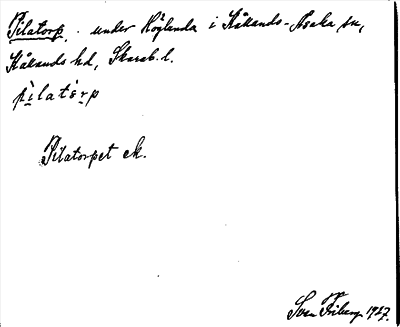 Pilatorp, under Höglunda i Kållands-Åsaka sn,
Kållands hd, Skarab. l.
pìlatórp
Pilatorpet ek.
Sven Friberg 1927.